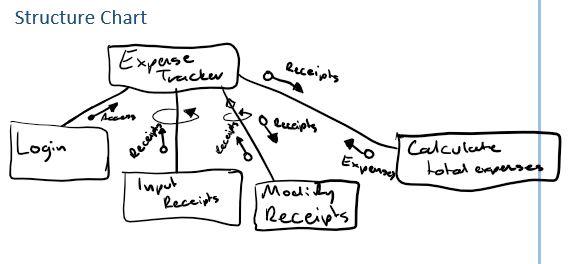 Structure Chart
Expense
Tracker
Receipts
Access
Receipts
Receipts
Receipts
Expenses
Login
Input
Receipts
Modify
Receipts
Calculate
total expenses